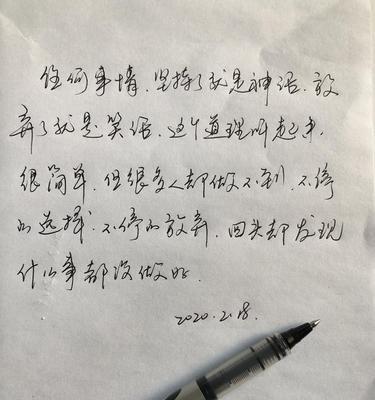 任何事情.坚持了就是神话.放
弃了就是笑话.这个道理听起来
很简单.但很多人却做不到.不停
的选择.不停的放弃.回头却发现
什么事都没做好.
2020.2.18.